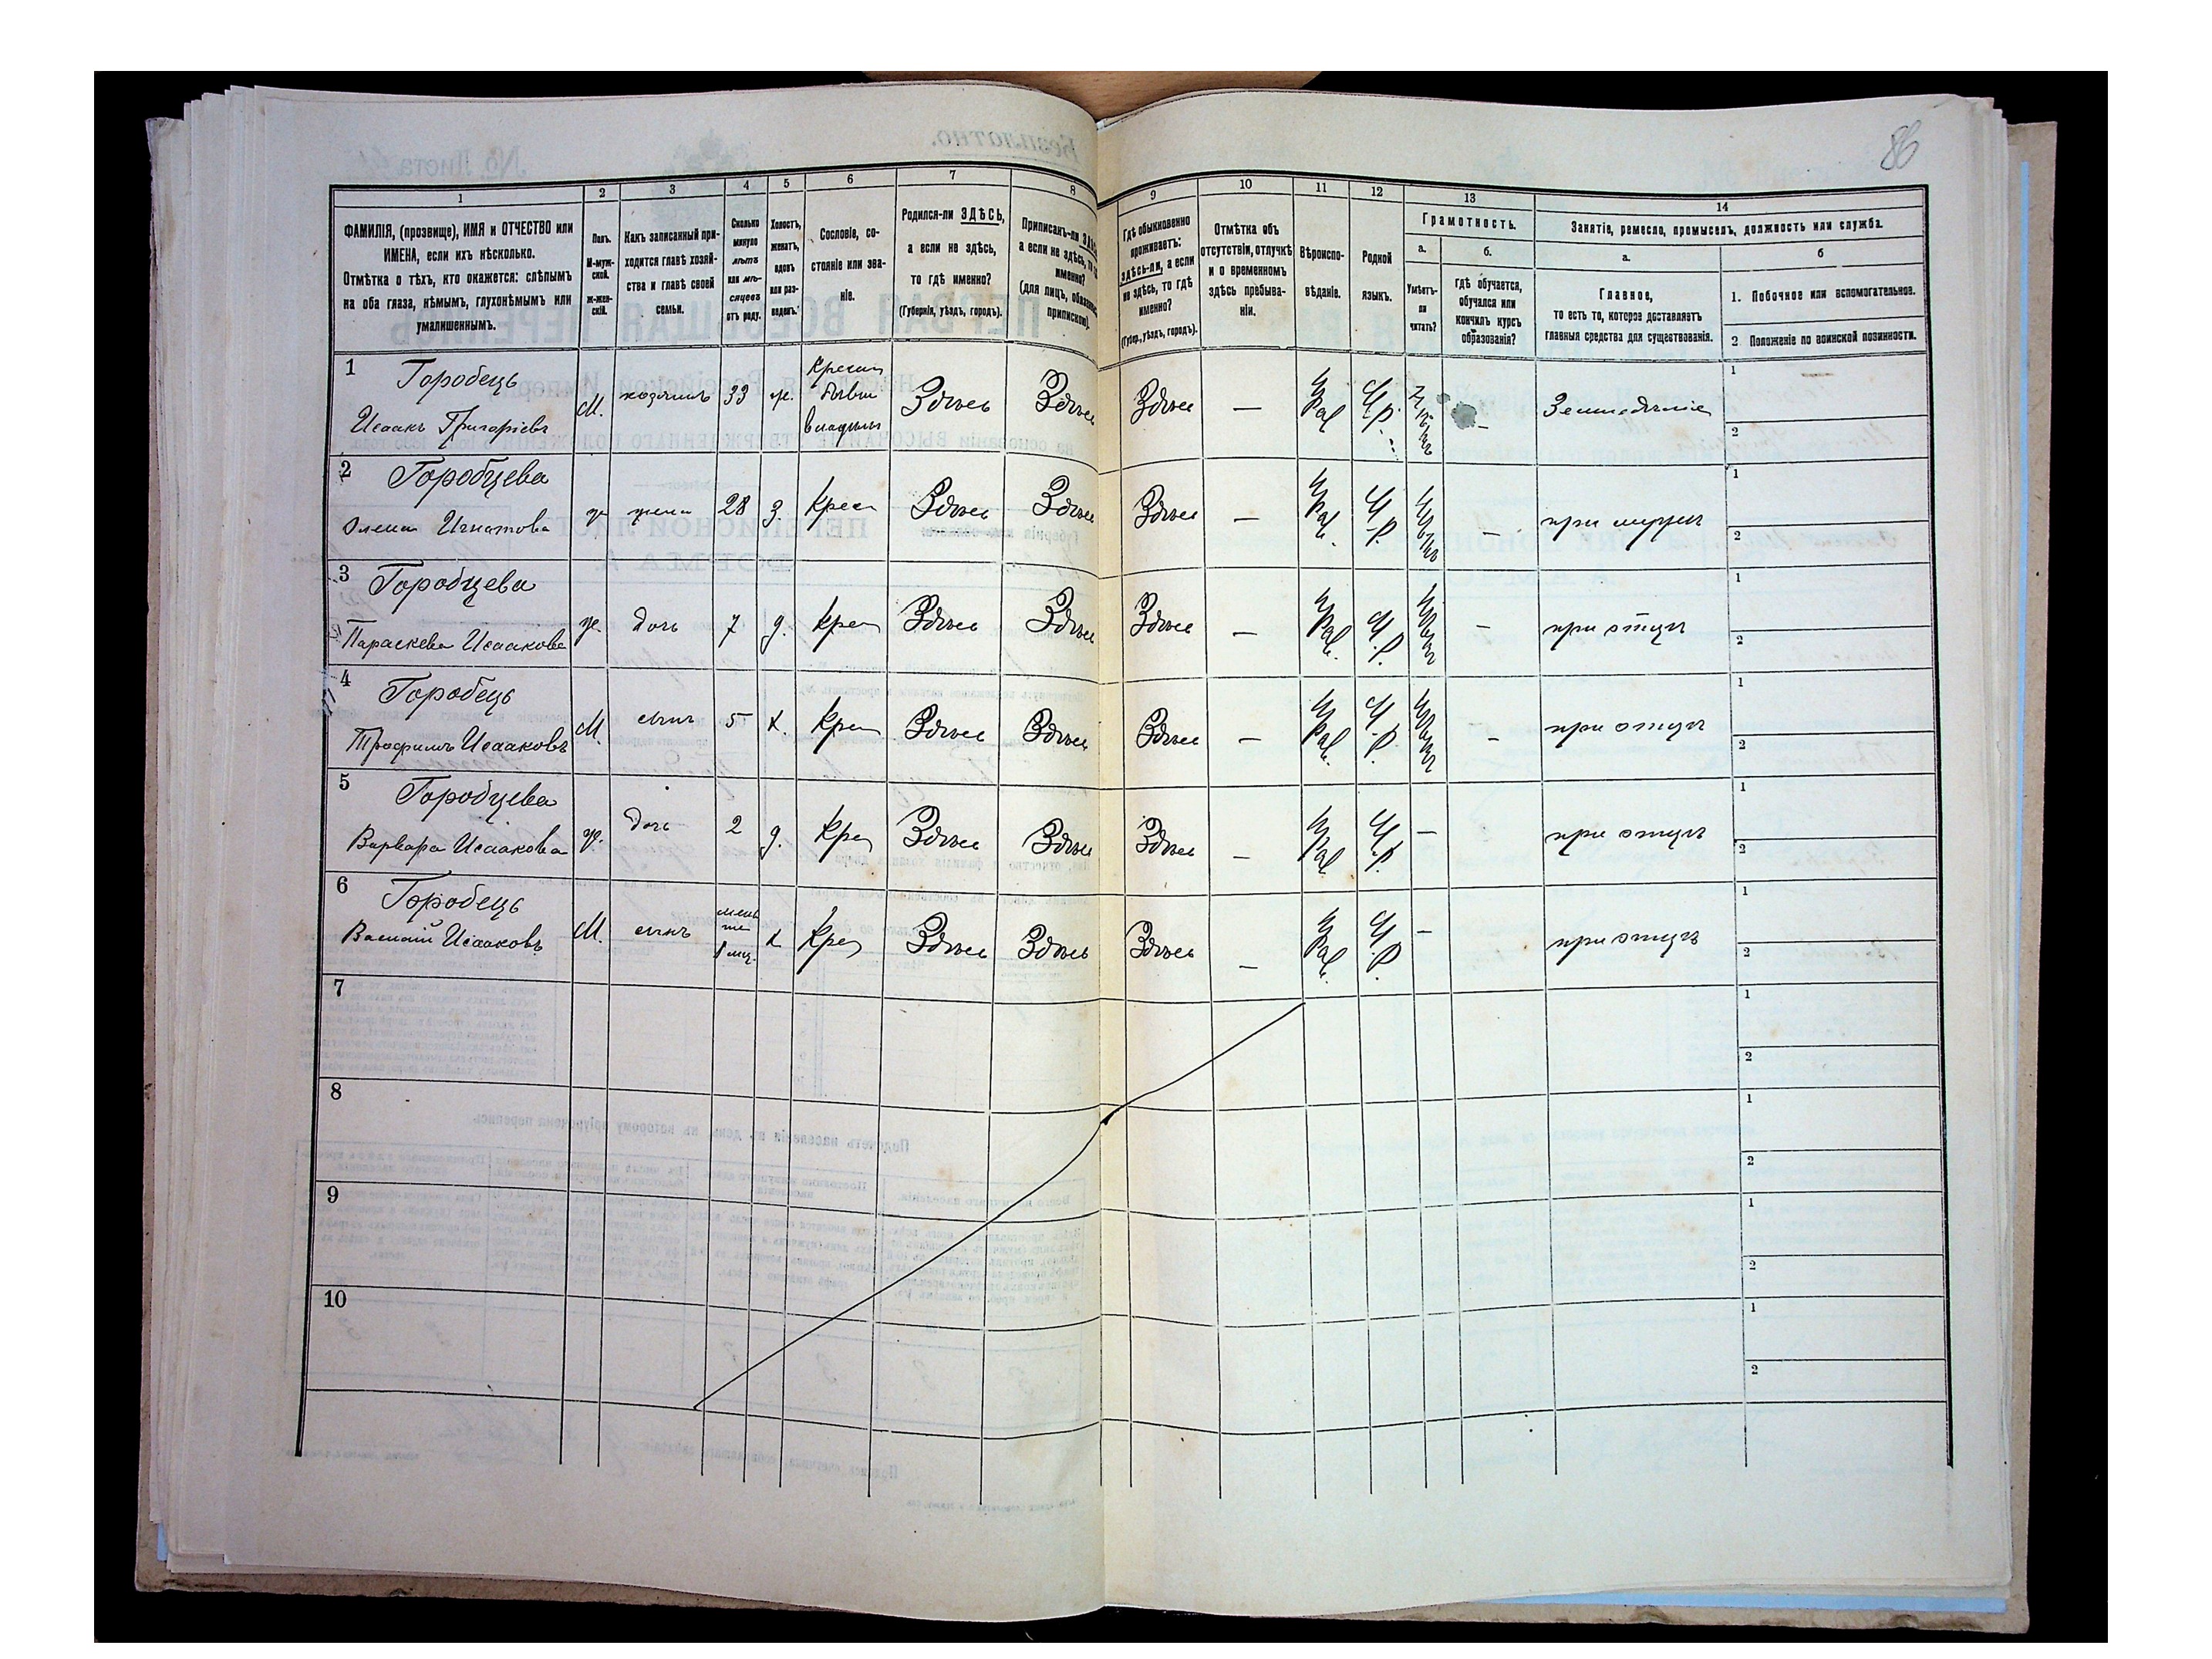 86
1 2 3 4 5 6 7 8 9 10 11 12 13 14
ФАМИЛІЯ, (прозвище), ИМЯ и ОТЧЕСТВО или
ИМЕНА, если ихъ нѣсколько.
Отмѣтка о тѣхъ, кто окажется: слѣпымъ
на оба глаза, нѣмымъ, глухонѣмымъ или
умалишеннымъ.
Полъ.
М-муж-
ской.
ж-жен-
скій.
Какъ записанный при-
ходится главѣ хозяй-
ства и главѣ своей
семьи.
Сколько
минуло
лѣтъ
или мѣ-
сяцевъ
отъ роду.
Холостъ,
женатъ,
вдовъ
или раз-
веденъ.
Сословіе, со-
стояніе или зва-
ніе.
Родился-ли ЗДѢСЬ,
а если не здѣсь,
то гдѣ именно?
(Губернія, уѣздъ, городъ).
Приписанъ-ли
а если не здѣсь, то
именно?
(для лицъ,
припискою).
Гдѣ обыкновенно
проживаетъ:
здѣсь-ли, а если
не здѣсь, то гдѣ
именно?
(Губер., уѣздъ, городъ).
Отмѣтка объ
отсутствіи, отлучкѣ
и о временномъ
здѣсь пребыва-
ніи.
Вѣроиспо-
вѣданіе.
Родной
языкъ.
Грамотность.
а. б.
Умѣетъ-
ли
читать?
Гдѣ обучается,
обучался или
кончилъ курсъ
образованія?
Занятіе, ремесло, промыселъ, должность или служба.
а. б
Главное,
то есть то, которое доставляетъ
главныя средства для существованія.
1. Побочное или вспомогательное.
2 Положеніе по воинской повинности.
1 Городець
Исаакъ Григоріевъ М. хозяинъ 33 ж. Здѣсь Здѣсь Здѣсь — Земледѣліе 1 2
2 Городцева
Олена Игнатова ж жена 28 З Крест Здѣсь Здѣсь Здѣсь — — 1 2
3 Городцева
Параскева Исаакова ж. дочь 7 д. Крес Здѣсь Здѣсь Здѣсь — — при отцѣ 1 2
4 Городець
Трофимъ Исааковъ М. сынъ 5 х. Крес Здѣсь Здѣсь Здѣсь — — при отцѣ 1 2
5 Городцева
Варвара Исаакова ж. дочь 2 д. Крес Здѣсь Здѣсь Здѣсь — — при отцѣ 1 2
6 Городець
Василій Исааковъ М. сынъ х Крес Здѣсь Здѣсь Здѣсь — — при отцѣ 1 2
7 1 2
8 1 2
9 1 2
10 1 2